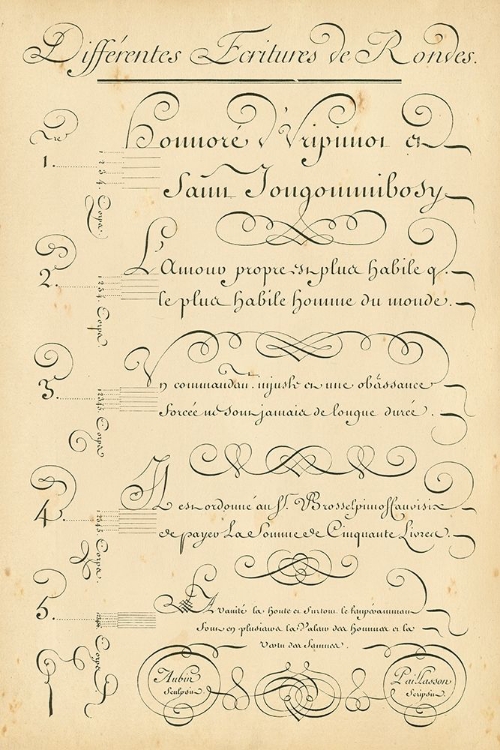 Différentes Ecritures de Rondes.
1.
Honnoré d'Uripimoi et
Saint Jongomimibosy
2.
L'Amour propre est plus habile q.
le plus habile homme du monde.
3.
Un commandant injuste et une obaissance
forcée ne sont jamais de longue durée.
4.
Il est ordonné au Sr. Brosselpimoffanvisix
de payer La Somme de Cinquante Livres
5.
La vanité la honte et surtout le tempéramment
Sont en plusieurs la Valeur des hommes et la
Vertu des femmes.
Aubin
Sculpsit
Paillasson
Scripsit